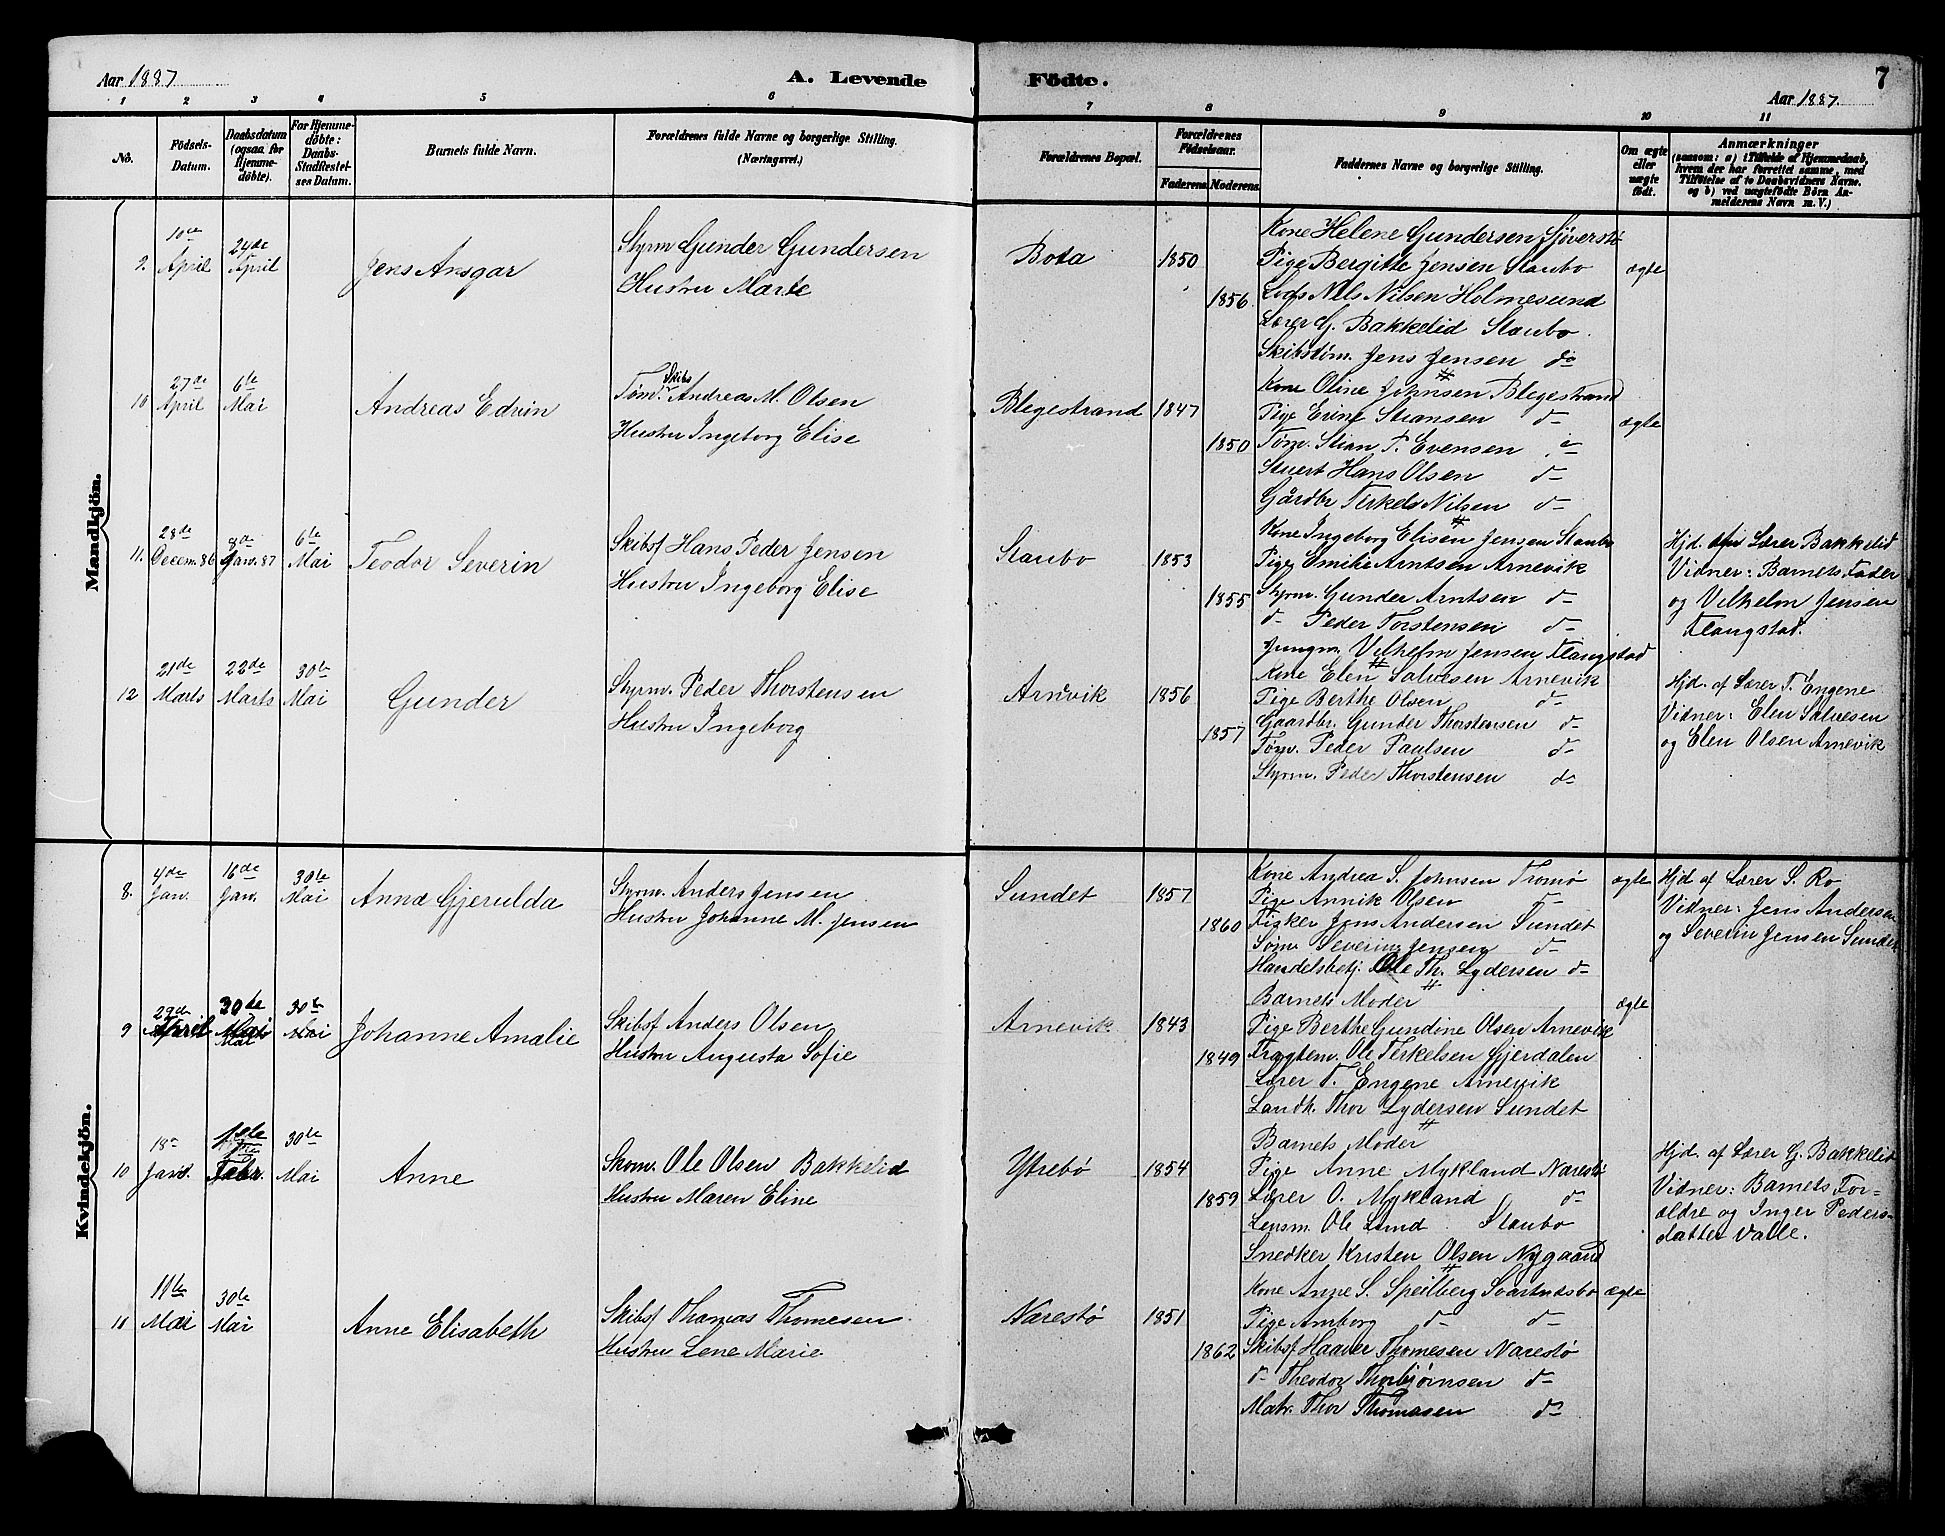 Aar 1887
A. Levende
Födte.
7
Aar 1887
1 2 3 4 5 6 7 8 9 10 11
No.
Födsels-
Datum.
Daabsdatum
(ogsaa for
Hjemme-
döbte).
For Hjemme-
döbte:
Daabs-
Stadfæstel-
ses Datum.
Barnets fulde Navn.
Forældrenes fulde Navne og borgerlige Stilling.
(Næringsvei.)
Forældrenes Bopæl.
Forældrenes
Födselsaar.
Faderens. Moderens.
Faddernes Navne og borgerlige Stilling.
Om ægte
eller
uægte
födt.
Anmærkninger
(saasom: a) i Tilfælde af Hjemmedaab,
hvem der har forrettet samme, med
Tilföielse af to Daabsvidners Navne.
og b) ved uægtefödte Börn An-
melderens Navn m. V.)
Mandkjön.
9. 10de April
24de April
Jens Ansgar
Styrm Gunder Gundersen
Hustru Marte
Bota
1850
1856
Kone Helene Gundersen Sjöverstø
Pige Bergitte Jensen Staubo
Lods Nils Nilsen Holmesund
Lærer G. Bakkelid Staubo
Skibstøm. Jens Jensen do
ægte
10 27de April
6te Mai
Andreas Edvin
Skibs
Tømr. Andreas M. Olsen
Hustru Ingeborg Elise
Blegestrand
1847
1850
Kone Oline Johnsen Blegestrand
Pige Evine Stiansen d-
Tøm. Stian T. Evensen d-
Stuert Hans Olsen d-
Gårdbr Terkels Nilsen d-
ægte
11. 28de Decem. 86
8de Jan. 87
6te Mai
Teodor Severin
Skibsf Hans Peder Jensen
Hustru Ingeborg Elise
Staubo
1853
1855
Kone Ingeborg Elisen Jensen Staubo
Pige Emilie Arntsen Arnevik
Styrm. Gunder Arntsen d-
d- Peder Torstensen d-
Jungm. Vilhelm Jensen Flangstad
Hjd. Lærer Bakkelid
Vidner: Barnets Fader
og Vilhelm Jensen
Flangstad.
12 21de Marts
22de Marts
30te Mai
Gunder
Styrm. Peder Thorstensen
Hustru Ingeborg
Arnevik
1856
1857
Kone Elen Salvesen Arnevik
Pige Berthe Olsen d-
Gaardbr. Gunder Thorstensen d-
Tøm. Peder Paulsen d-
Styrm. Peder Thorstensen d-
Hjd. af Lærer T. Engene
Vidner: Elen Salvesen
og Elen Olsen Arnevik
Kvindekjön.
8. 4de Jan.
16de Jan.
30te Mai
Anna Gjerulda
Styrm. Anders Jensen
Hustru Johanne M. Jensen
Sundet
1857
1860
Kone Andrea S. Johnsen Tromø
Pige Annik Olsen d-
Fisker Jens Andersen Sundet
Søm. Severin Jensen d-
Handelsbetj. Ole Th. Lydersen d-
ægte
Hjd af Lærer S. Ro
Vidner: Jens Andersen
og Severin Jensen Sundet
9 29de April
30te Mai
30te Mai
Johanne Amalie
Skibsf Anders Olsen
Hustru Augusta Sofie
Arnevik
1843
1849
Barnets Moder
Pige Berthe Gundine Olsen Arnevik
Fragtem. Ole Terkelsen Gjerdalen
Lærer T. Engene Arnevik
Landh. Thor Lydersen Sundet
ægte
10 18de Jan.
1ste Febr.
30te Mai
Anne
Skom. Ole Olsen Bakkelid
Hustru Maren Eline
Ytrebø
1854
1859
Barnets Moder
Pige Anne Mykland Narestø
Lærer O. Mykland d-
Lensm. Ole Lund Staubo
Snedker Kristen Olsen Nygaard
Hjd. af Lærer G. Bakkelid
Vidner: Barnets For-
ældre og Inger Peders-
datter Valle.
11 11te Mai
30te Mai
Anne Elisabeth
Skibsf Thomas Thomesen
Hustru Lene Marie
Narestø
1851
1862
Kone Anne S. Speilberg Svartnesbo
Pige Amborg d- d-
Skibsf Haaver Thomesen Narestø
d- Theodor Thorbjørnsen d-
Matr. Thor Thomasen d-
ægte